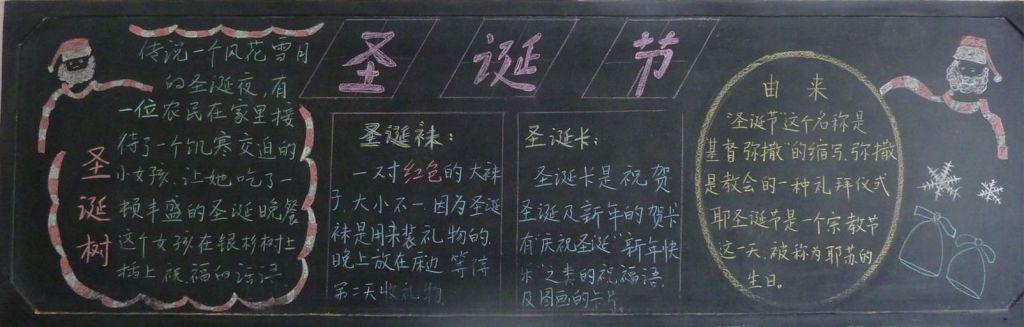 圣诞节
圣诞树
传说一个风花雪月
的圣诞夜，有
一位农民在家里接
待了一个饥寒交迫的
小女孩，让她吃了一
顿丰盛的圣诞晚餐
这个女孩在银杉树上
插上祝福的
圣诞袜：
一对红色的大袜
子，大小不一因为圣诞
袜是用来装礼物的，
晚上放在床边，等待
第二天收礼物
圣诞卡：
圣诞卡是祝贺
圣诞及新年的贺卡
有"庆祝圣诞"、新年快
乐"之类的祝福语，
及图画的卡片。
由来
"圣诞节"这个名称是
基督弥撒"的缩写，弥撒
是教会的一种礼拜仪式
耶圣诞节是一个宗教节
这一天，被称为耶苏的
生日。